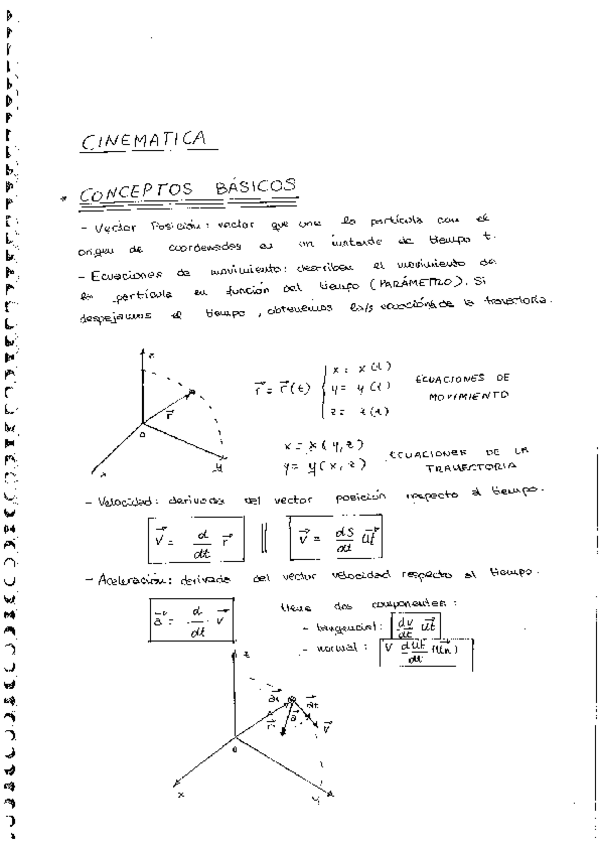 CINEMATICA
* CONCEPTOS BÁSICOS
- Vector Posición: vector que une la partícula con el
origen de coordenadas en un instante de tiempo t.
- Ecuaciones de movimiento: describen el movimiento de
la partícula en función del tiempo (PARÁMETRO). Si
despejamos el tiempo, obtenemos la/s ecuación/es de la trayectoria.
z
r⃗
0
y
r⃗ = r⃗(t) { x = x(t)
y = y(t)
z = z(t)
ECUACIONES DE
MOVIMIENTO
x = x(y,z)
y = y(x,z)
ECUACIONES DE LA
TRAYECTORIA
- Velocidad: derivada del vector posición respecto al tiempo.
v⃗ = d/dt r⃗ || v⃗ = ds/dt u⃗t
- Aceleración: derivada del vector velocidad respecto al tiempo.
a⃗ = d/dt · v⃗
tiene dos componentes:
- tangencial: dv/dt u⃗t
- normal: v du⃗t/dt (u⃗n)
z
r⃗
a⃗
a⃗t
v⃗
0
x
y